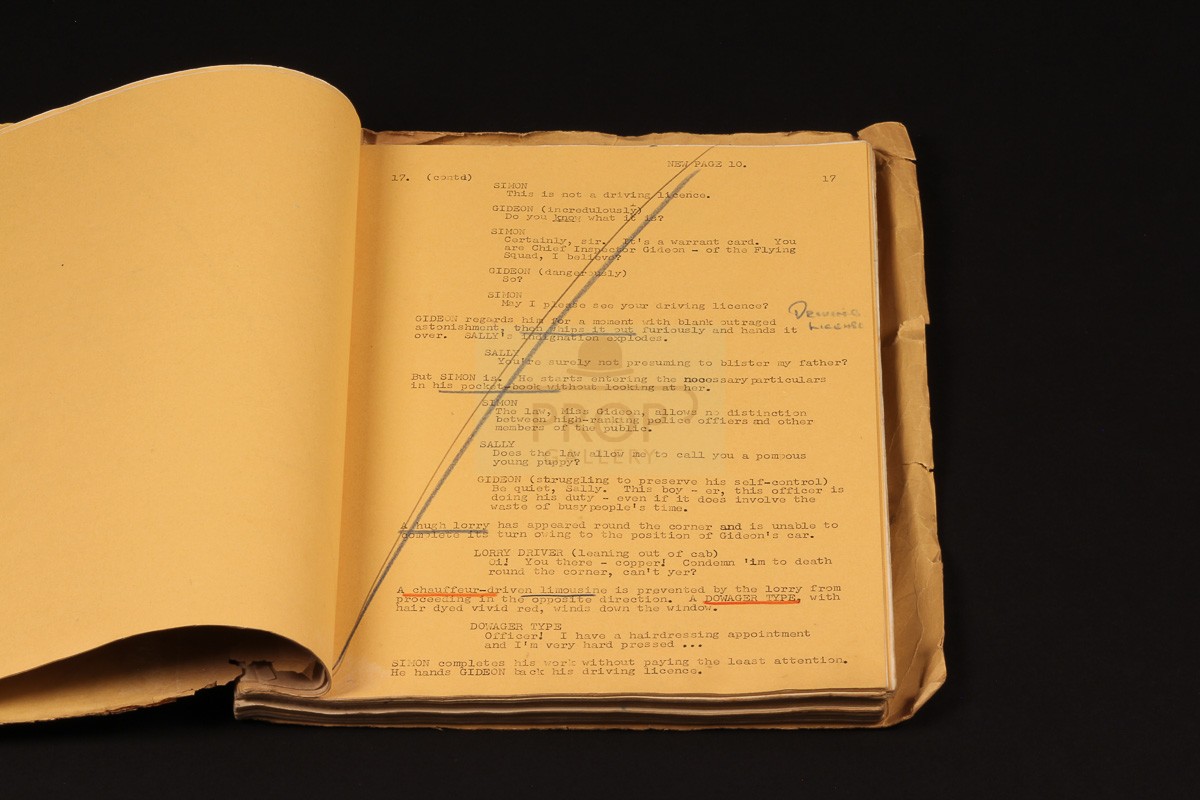 NEW PAGE 10.
17. (contd) 17
SIMON
This is not a driving licence.
GIDEON (incredulously)
Do you know what it is?
SIMON
Certainly, sir. It's a warrant card. You
are Chief Inspector Gideon - of the Flying
Squad, I believe?
GIDEON (dangerously)
So?
SIMON
May I please see your driving licence?
GIDEON regards him for a moment with blank outraged
astonishment, then whips it out furiously and hands it
over. SALLY's indignation explodes.
DRIVING
LICENSE
SALLY
You're surely not presuming to blister my father?
But SIMON is. He starts entering the necessary particulars
in his pocket-book without looking at her.
SIMON
The law, Miss Gideon, allows no distinction
between high-ranking police offiers and other
members of the public.
SALLY
Does the law allow me to call you a pompous
young puppy?
GIDEON (struggling to preserve his self-control)
Be quiet, Sally. This boy - er, this officer is
doing his duty - even if it does involve the
waste of busy people's time.
A hugh lorry has appeared round the corner and is unable to
complete its turn owing to the position of Gideon's car.
LORRY DRIVER (leaning out of cab)
Oi! You there - copper! Condemn 'im to death
round the corner, can't yer?
A chauffeur-driven limousine is prevented by the lorry from
proceeding in the opposite direction. A DOWAGER TYPE, with
hair dyed vivid red, winds down the window.
DOWAGER TYPE
Officer! I have a hairdressing appointment
and I'm very hard pressed ...
SIMON completes his work without paying the least attention.
He hands GIDEON back his driving licence.
PROP
GALLERY